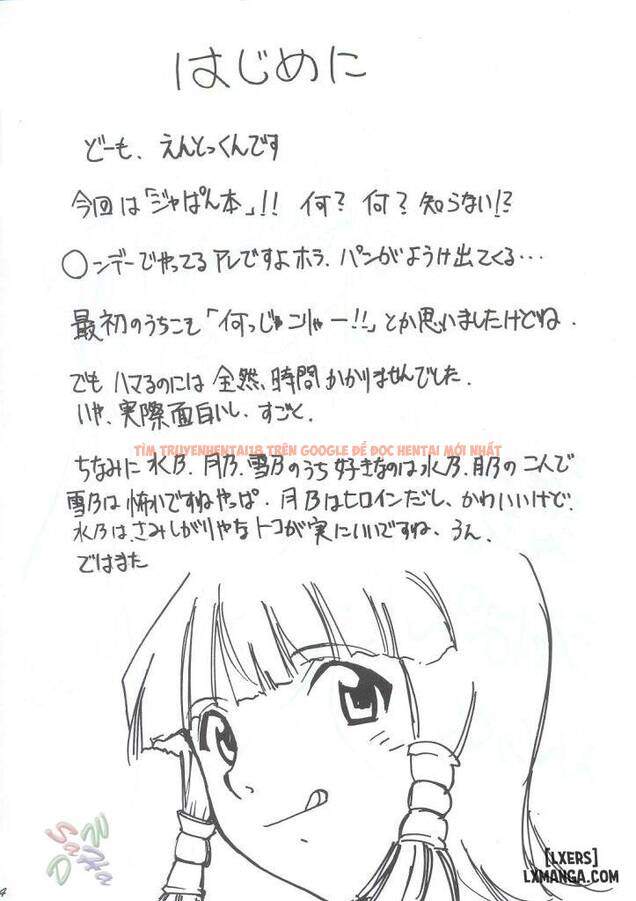 はじめに
どーも、えんとっくんです
今回は「ジャぱん本」!! 何? 何? 知らない!?
○ンデーでやってるアレですよホラ、パンがようけ出てくる…
最初のうちこそ「何っじゃこりゃー!!」とか思いましたけどね.
でもハマるのには全然、時間かかりませんでした.
いや、実際面白いし、すごと.
TÌM TRUYENHENTAI18 TRÊN GOOGLE ĐỂ ĐỌC HENTAI MỚI NHẤT
ちなみに水乃、月乃、雪乃のうち好きなのは水乃、月乃の二人で
雪乃は怖いですねやっぱ. 月乃はヒロインだし、かわいいけど.
水乃は、さみしがりやなトコが実にいいですね、うん.
ではまた
SaHa
4
[LXERS]
LXMANGA.COM